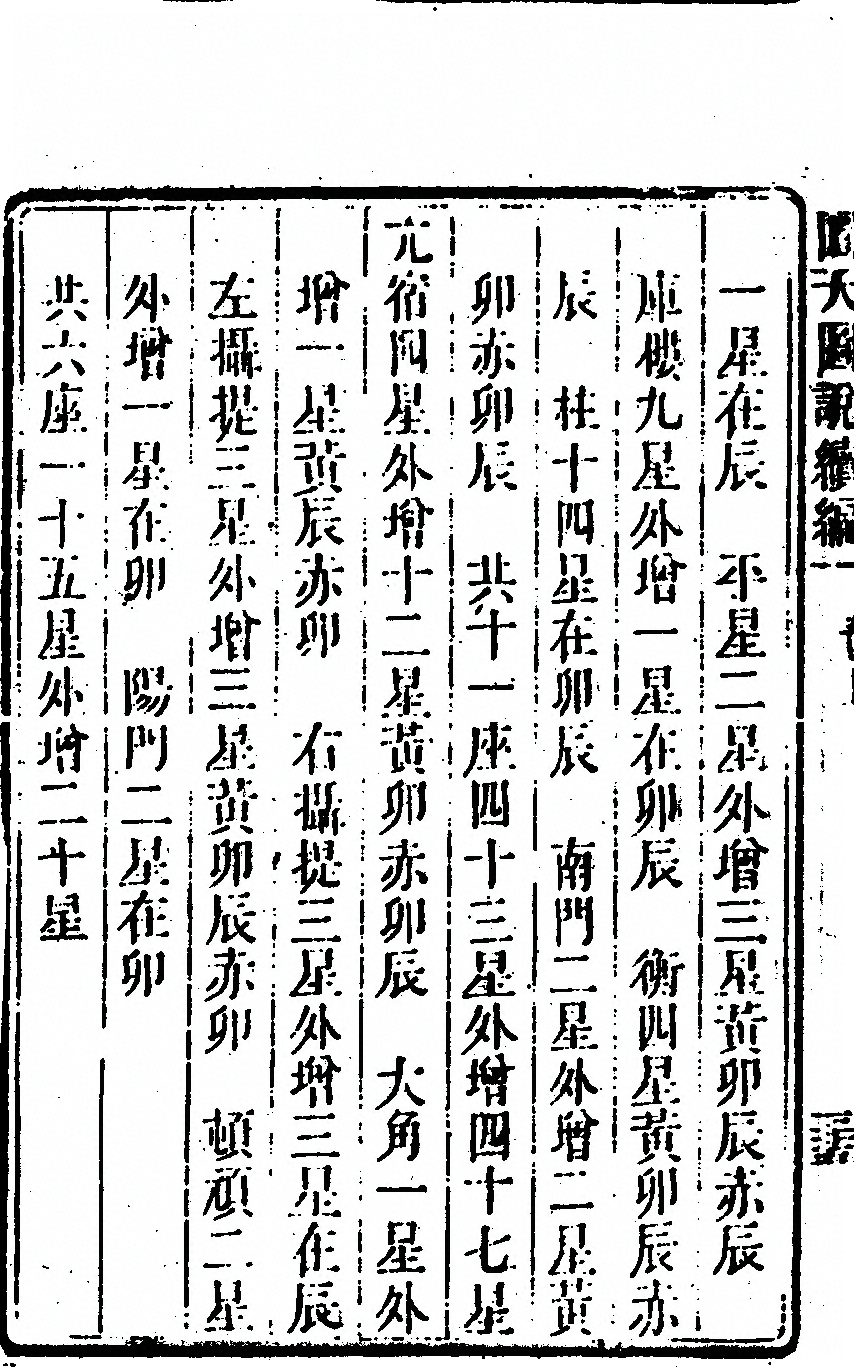 一星在辰　平星二星外增三星黃卯辰赤辰
庫樓九星外增一星在卯辰　衡四星黃卯辰赤
辰　柱十四星在卯辰　南門二星外增二星黃
卯赤卯辰　共十一座四十三星外增四十七星
亢宿四星外增十二星黃卯赤卯辰　大角一星外
增一星黃辰赤卯　右攝提三星外增三星在辰
左攝提三星外增三星黃卯辰赤卯　頓頑二星
外增一星在卯　陽門二星在卯
共六座一十五星外增二十星